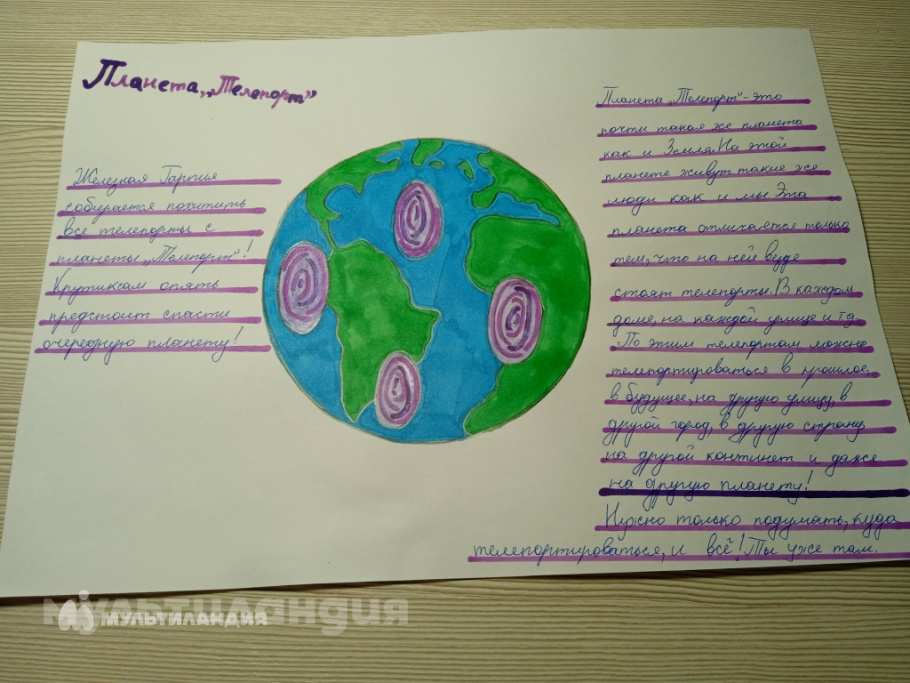 Планета „Телепорт"
Железная Гарпия
собирается похитить
все телепорты с
планеты „Телепорт"!
Крутиксам опять
предстоит спасти
очередную планету!
Планета „Телепорт"-это
почти такая же планета
как и Земля. На этой
планете живут такие же
люди как и мы. Эта
планета отличается только
тем, что на ней везде
стоят телепорты. В каждом
доме, на каждой улице и тд.
По этим телепортам можно
телепортироваться в прошлое,
в будущее, на другую улицу, в
другой город, в другую страну,
на другой континет и даже
на другую планету!
Нужно только подумать, куда
телепортироваться, и всё! Ты уже там.
мультиландия
МУЛЬТИЛАНДИЯ